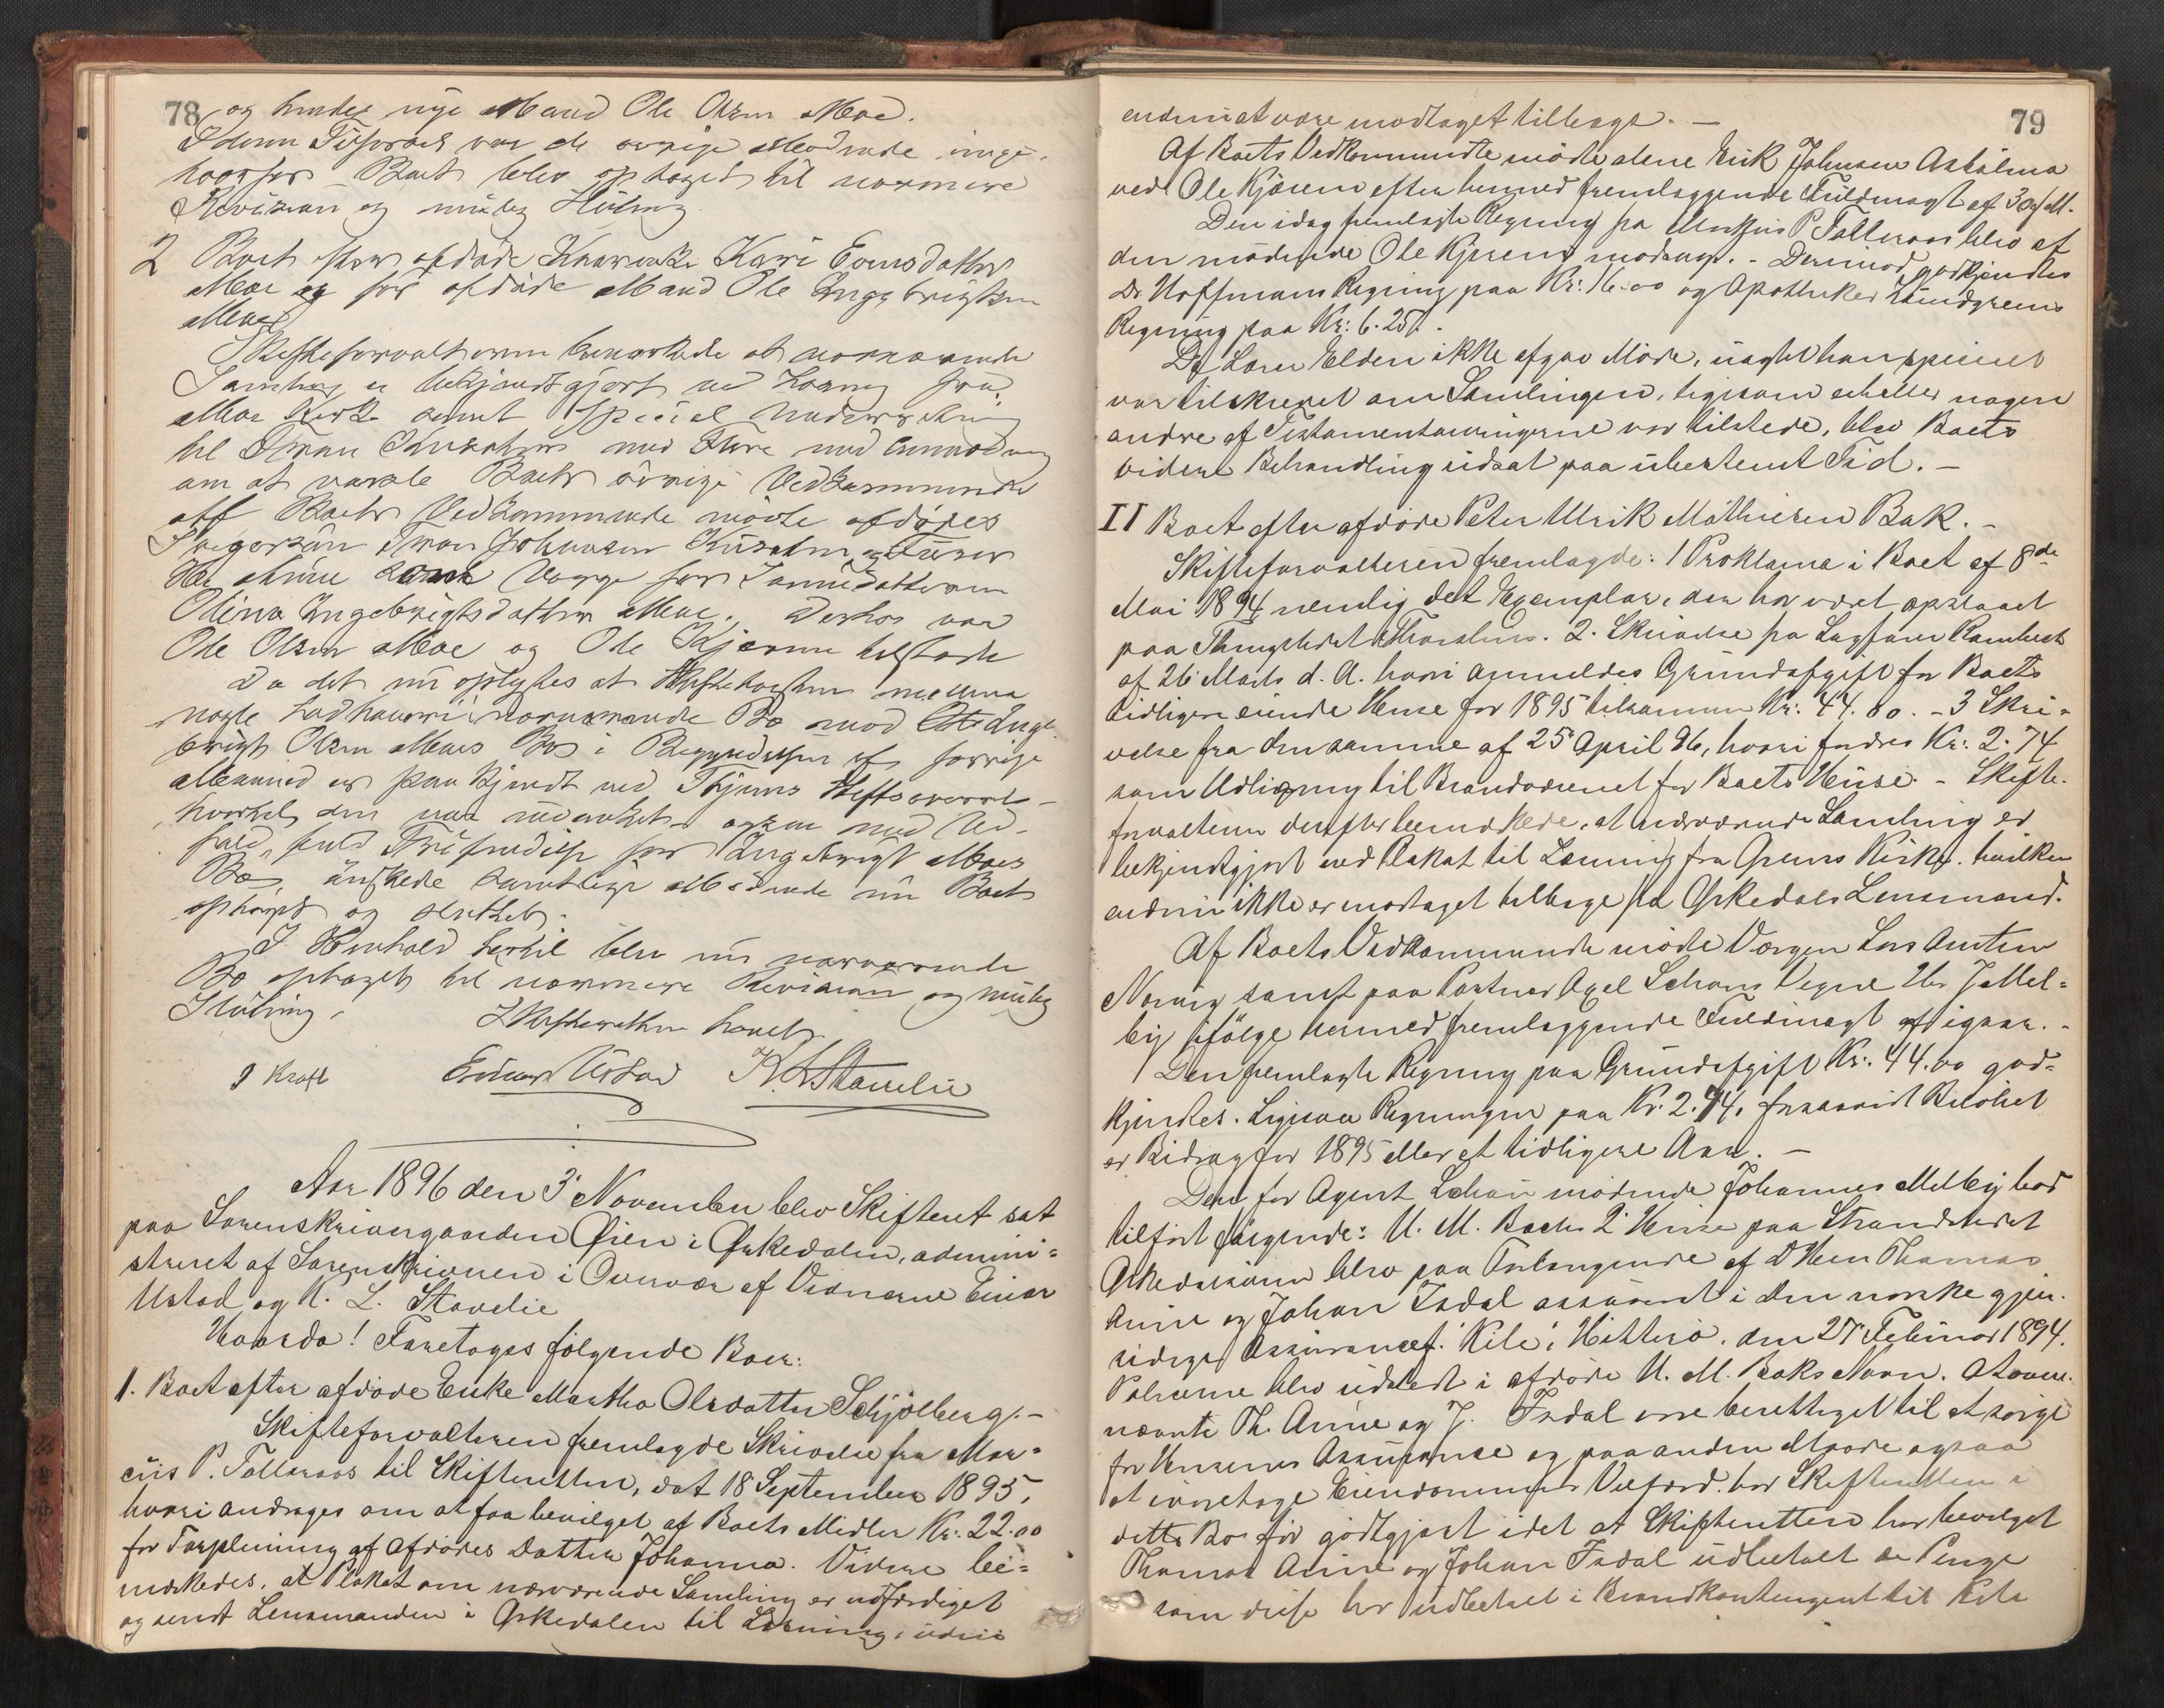 78 og hendes nye Mand Ole Olsen Moe.
I denne Tilforsel var de øvrige Mødende enige.
hvorfor Boet blev optaget til nærmere
Revision og mulig Slutning.
2 Boet efter afdøde Kari Evensdatter
Moe og før afdøde Mand Ole Ingebrigtsen
Moe
Skifteforvalteren bemærkede at nærværende
Samling er bekjendtgjort ved Læsning fra
Moe Kirke samt speciel Underretning
til med Flere med Anmodning
om at varsle Boets øvrige Vedkommende
Af Boets Vedkommende mødte afdødes
Svigersøn Johansen
som Værge for Sønnedatteren
Olina Ingebrigtsdatter Moe. Derhos var
Ole Olsen Moe og Ole Kjærem tilstede
Da det nu oplystes at mellem
nogle i nærværende Bo mod Inge-
brigt Olsen Moes Bo i Begyndelsen af forrige
Maaned er paakjendt ved
hvorhos den
fald, fuld for Ingebrigt Moes
Bo, ønskede samtlige Mødende nu Boet
optaget og sluttet.
I Henhold hertil blev nu nærværende
Bo optaget til nærmere Revision og mulig
Slutning.
Skifteretten hævet
J Kraft Einar Ustad K. L. Stavelie
Aar 1896 den 3' November blev Skifteret sat
paa Sorenskrivergaarden Øien i Ørkedalen, admini-
streret af Sorenskriveren i Overvær af Vidnerne Einar
Ustad og K. L. Stavelie
Hvorda! Foretoges følgende Boer:
1. Boet efter afdøde Enke Martha Olsdatter Schjølberg.-
Skifteforvalteren fremlagde Skrivelse fra Mar-
cus P. Tollaaas til Skifteretten, dat 18 September 1895,
hvori andrages om at faa bevilget af Boets Midler Kr: 22.00
for Forpleining af Afdødes Datter Johanna. Videre be-
mærkedes, at Plakat om nærværende Samling er udfærdiget
og sendt Lensmanden i Ørkedalen til Læsning, uden
79
endnu at være modtaget tilbage. —
Af Boets Vedkommende mødte alene Erik Johnsen
ved Ole Kjærem efter hermed fremlæggende Fuldmagt af 30 f. M.
Den idag fremlagte Regning fra Markus P. Tollaaas blev af
den mødende Ole Kjerem modsagt. - Derimod godkjendtes
Dr Hoffmans Regning paa Kr: 16.00 og Apotheker Lundgrens
Regning paa Kr: 6.25.
Da Lars Elden ikke afgav Møde, uagtet han specielt
var tilskrevet om Samlingen, ligesom ei heller nogen
andre af Testamentarvingerne var tilstede, blev Boets
videre Behandling udsat paa ubestemt Tid. —
II Boet efter afdøde Peter Ulrik Mathiesen Bak. -
Skifteforvalteren fremlagde: 1 Proklama i Boet af 8de
Mai 1894 nemlig det Exemplar, der har været opslaaet
paa Thingstedet Thorshus. 2. Skrivelse fra Sagfører Rambech
af 26 Marts d. A. hvori anmeldes Grundafgift for Boets
tidligere eiende Huse for 1895 tilsammen Kr: 44.00. - 3 Skri-
velse fra den samme af 25 April 96, hvori fordres Kr: 2.74
som Udligning til Brandvæsenet for Boets Huse. - Skifte-
forvalteren derefter bemærkede, at nærværende Samling er
bekjendtgjort ved Plakat til Læsning fra Ørens Kirke, hvilken
endnu ikke er modtaget tilbage fra Ørkedals Lensmand.
Af Boets Vedkommende mødte Værgen Lars Austen
samt paa Partner Axel Schous Vegne Hr J. Mel-
by ifølge hermed fremlæggende Fuldmagt af igaar. -
Den fremlagte Regning paa Grundafgift Kr: 44.00 god-
kjendtes. Ligesaa Regningen paa Kr. 2.74, forsaavidt Beløbet
er Bidrag for 1895 eller et tidligere Aar. —
Den for Agent Schou mødende Johannes Melby bad
tilført følgende: U. M. Baks 2 Huse paa Strandstedet
Ørkedalsøren blev paa Forlangende af DHerrer Thomas
Anne og Johan Indal assureret i den norske gjen-
sidige Assurancef. "Kile", Hitterø, den 27 Februar 1894.
Policerne blev udstedt i afdøde U. M. Baks Navn. At oven-
nævnte Th. Anne og J. Indal vare berettiget til at sørge
for Husenes Assurance og paa anden Maade ogsaa
at varetage Eiendommens Velfærd, har Skifteretten i
dette Bo før godtgjort idet at Skifteretten har bevilget
Thomas Anne og Johan Indal udbetalt de Penge
som disse har udbetalt i Brandkontingent til Kile